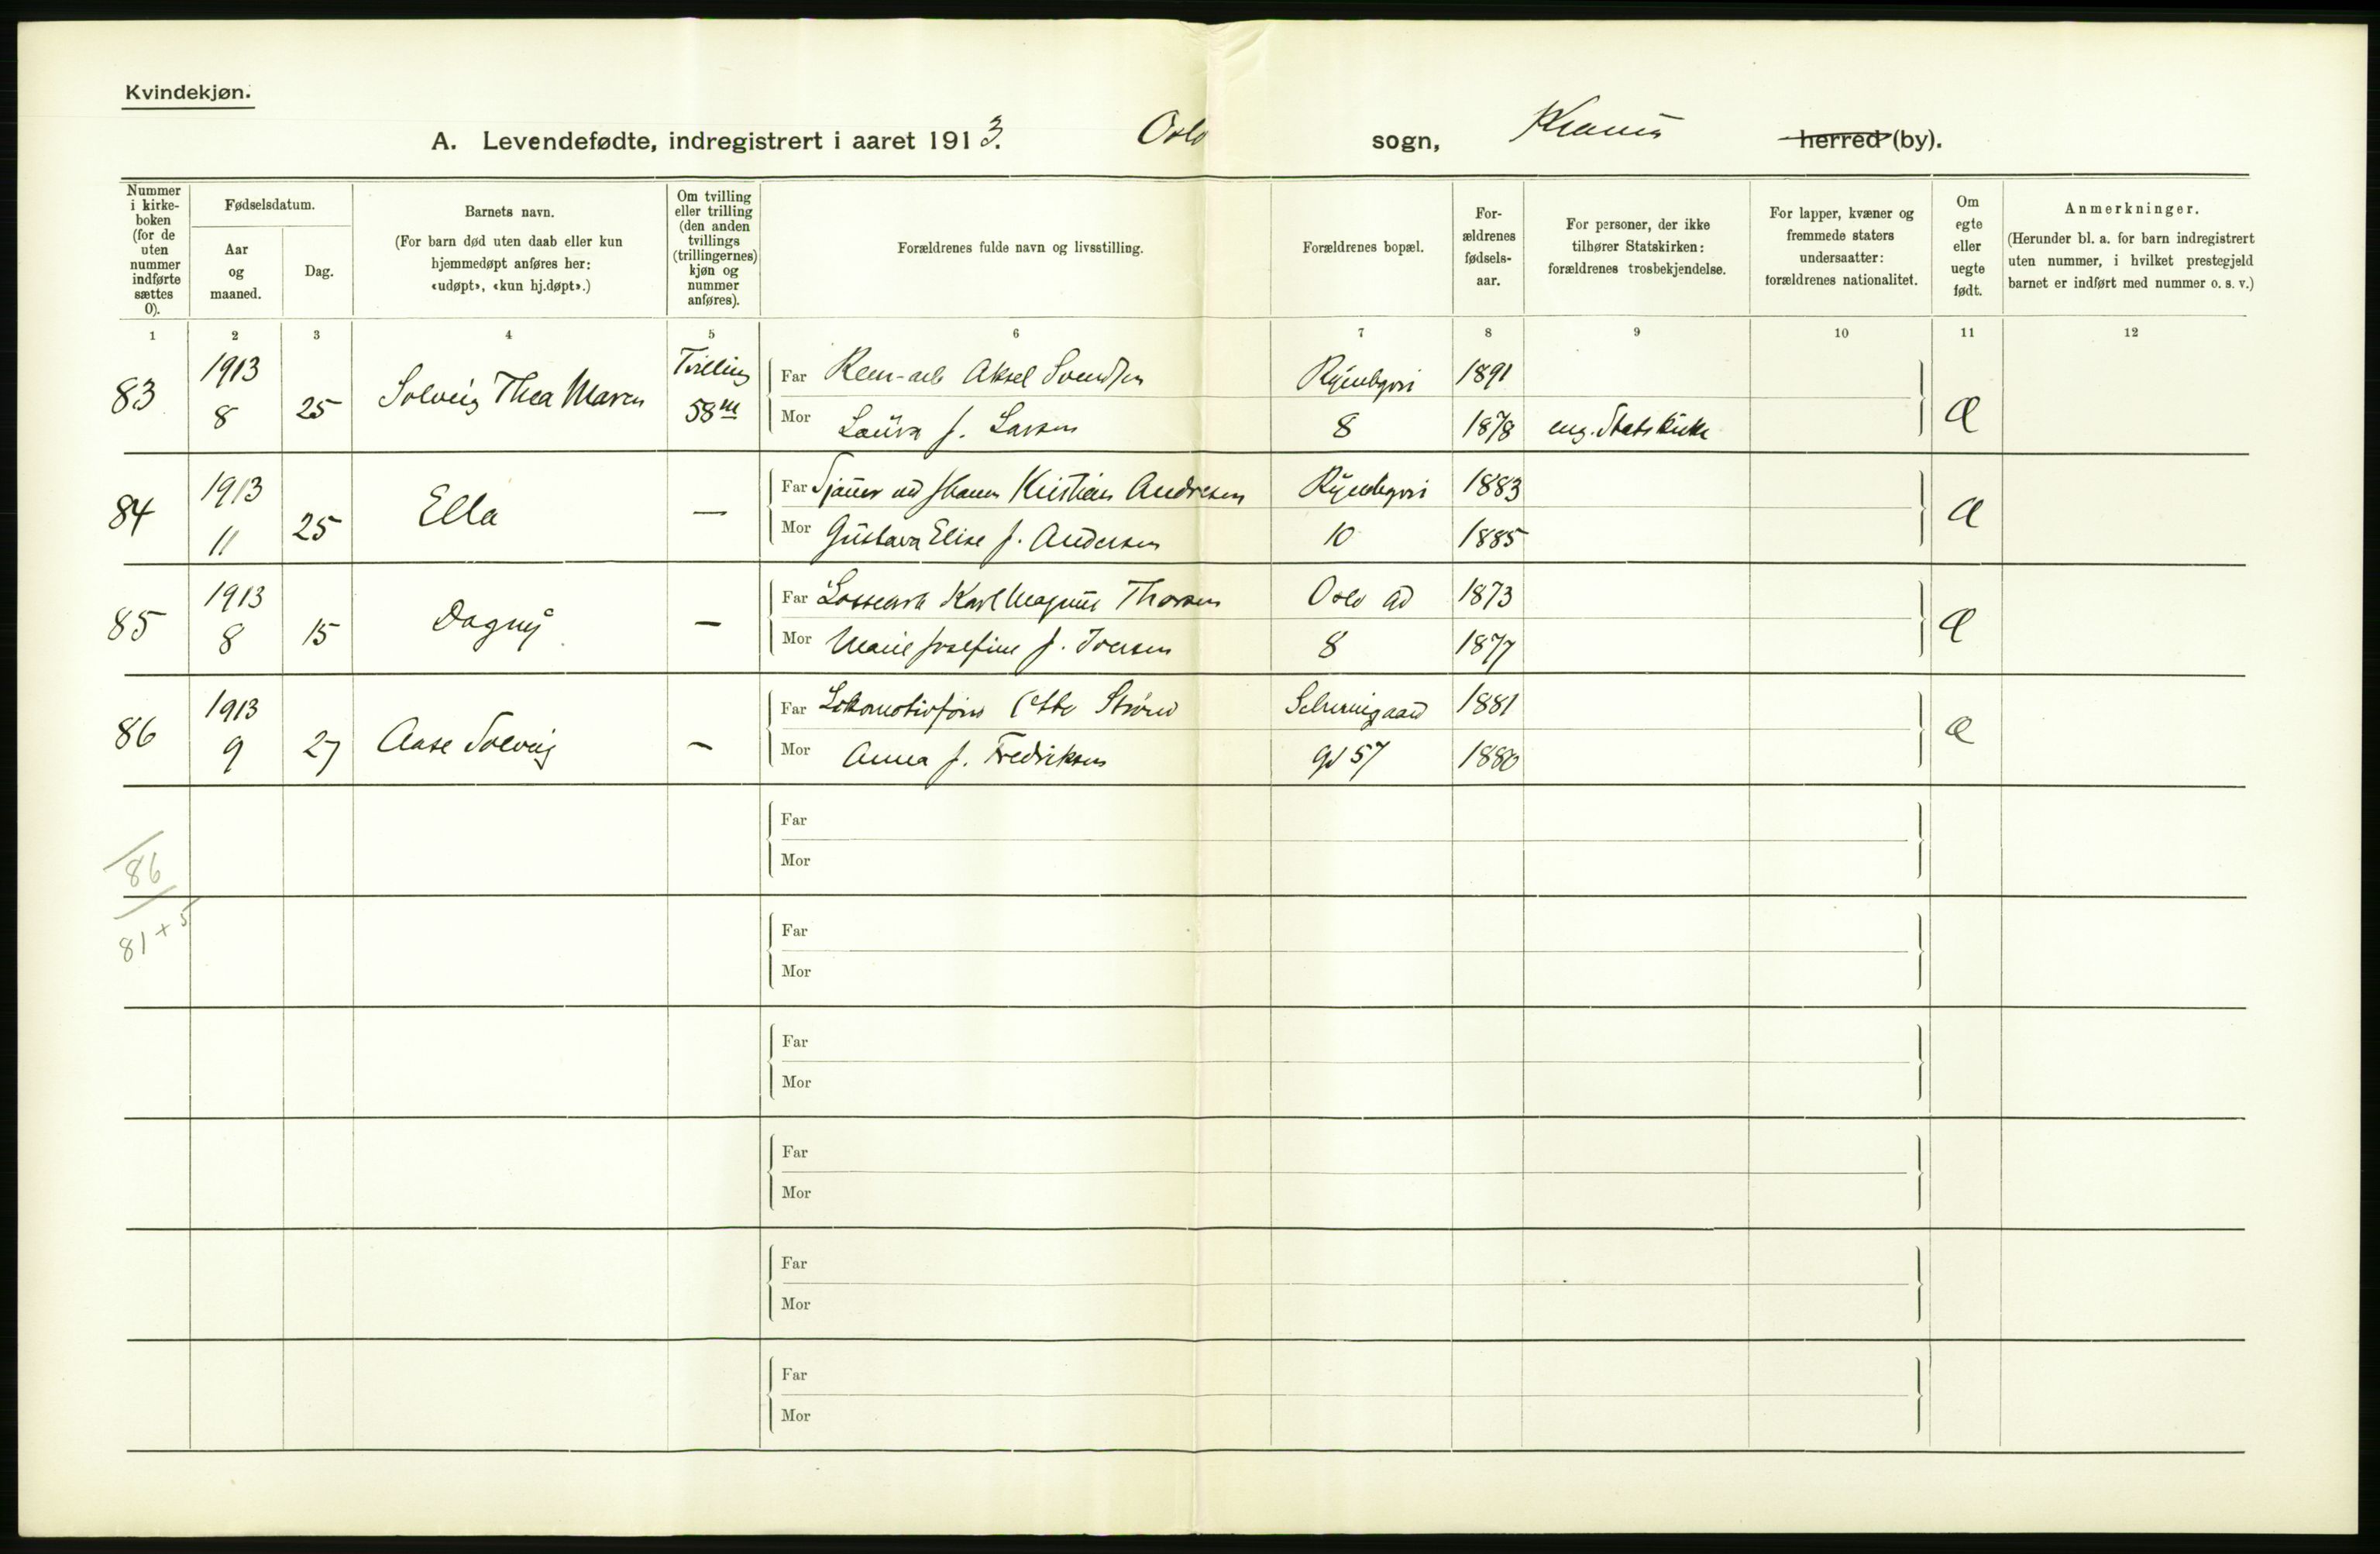 Kvindekjøn.
A. Levendefødte, indregistrert i aaret 1913. Oslo sogn, Krania herred (by).
Nummer i kirke-boken (for de uten nummer indførte sættes 0).
Fødselsdatum.
Aar og maaned.
Dag.
Barnets navn.
(For barn død uten daab eller kun
hjemmedøpt anføres her:
«udøpt», «kun hj.døpt».)
Om tvilling
eller trilling
(den anden
tvillings
(trillingernes)
kjøn og
nummer
anføres).
Forældrenes fulde navn og livsstilling.
Forældrenes bopæl.
For-
ældrenes
fødsels-
aar.
For personer, der ikke
tilhører Statskirken:
forældrenes trosbekjendelse.
For lapper, kvæner og
fremmede staters
undersaatter:
forældrenes nationalitet.
Om
egte
eller
uegte
født.
Anmerkninger.
(Herunder bl. a. for barn indregistrert
uten nummer, i hvilket prestegjeld
barnet er indført med nummer o. s. v.)
1 2 3 4 5 6 7 8 9 10 11 12
83 1913 8 25 Solveig Thea Maren Tvilling 58 m
Far Ren-arb Aksel Svendsen 1891
Mor Laura f. Larsen 8 1878 eng. Statskirke
84 1913 11 25 Ella —
Far Kristian Andresen 1883
Mor Gustava Elise f. Andersen 10 1885
85 1913 8 15 Dagny —
Far Lossearb Karl Magnus Thorsen Oslo 1873
Mor Marie Josefine f. Iversen 8 1877
86 1913 9 27 Aase Solveig —
Far Otto 1881
Mor Anna f. Fredriksen 57 1880
Far
Mor
86
Far
Mor
81 + 5
Far
Mor
Far
Mor
Far
Mor
Far
Mor